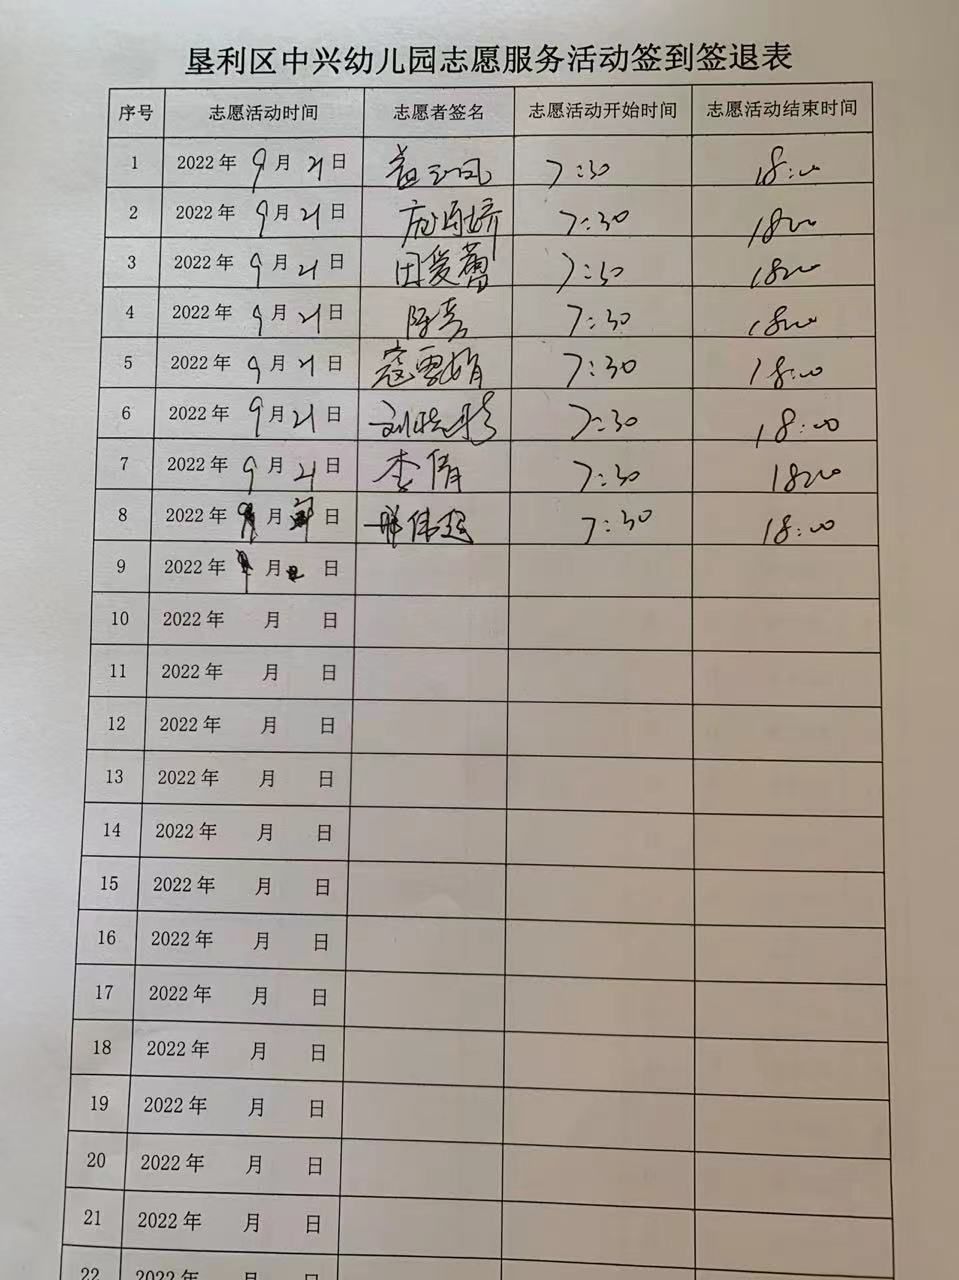 垦利区中兴幼儿园志愿服务活动签到签退表
序号 志愿活动时间 志愿者签名 志愿活动开始时间 志愿活动结束时间
1 2022年 9月 21日 7:30 18:00
2 2022年 9月 21日 7:30 1800
3 2022年 9月 21日 田爱蕾 7:30 1800
4 2022年 9月 21日 陈亮 7:30 1800
5 2022年 9月 21日 寇雪娟 7:30 18:00
6 2022年 9月 21日 刘晓彤 7:30 18:00
7 2022年 9月 21日 李倩 7:30 1800
8 2022年 9月 日 伟超 7:30 18:00
9 2022年 月 日
10 2022年 月 日
11 2022年 月 日
12 2022年 月 日
13 2022年 月 日
14 2022年 月 日
15 2022年 月 日
16 2022年 月 日
17 2022年 月 日
18 2022年 月 日
19 2022年 月 日
20 2022年 月 日
21 2022年 月 日
22 2022年 月 日